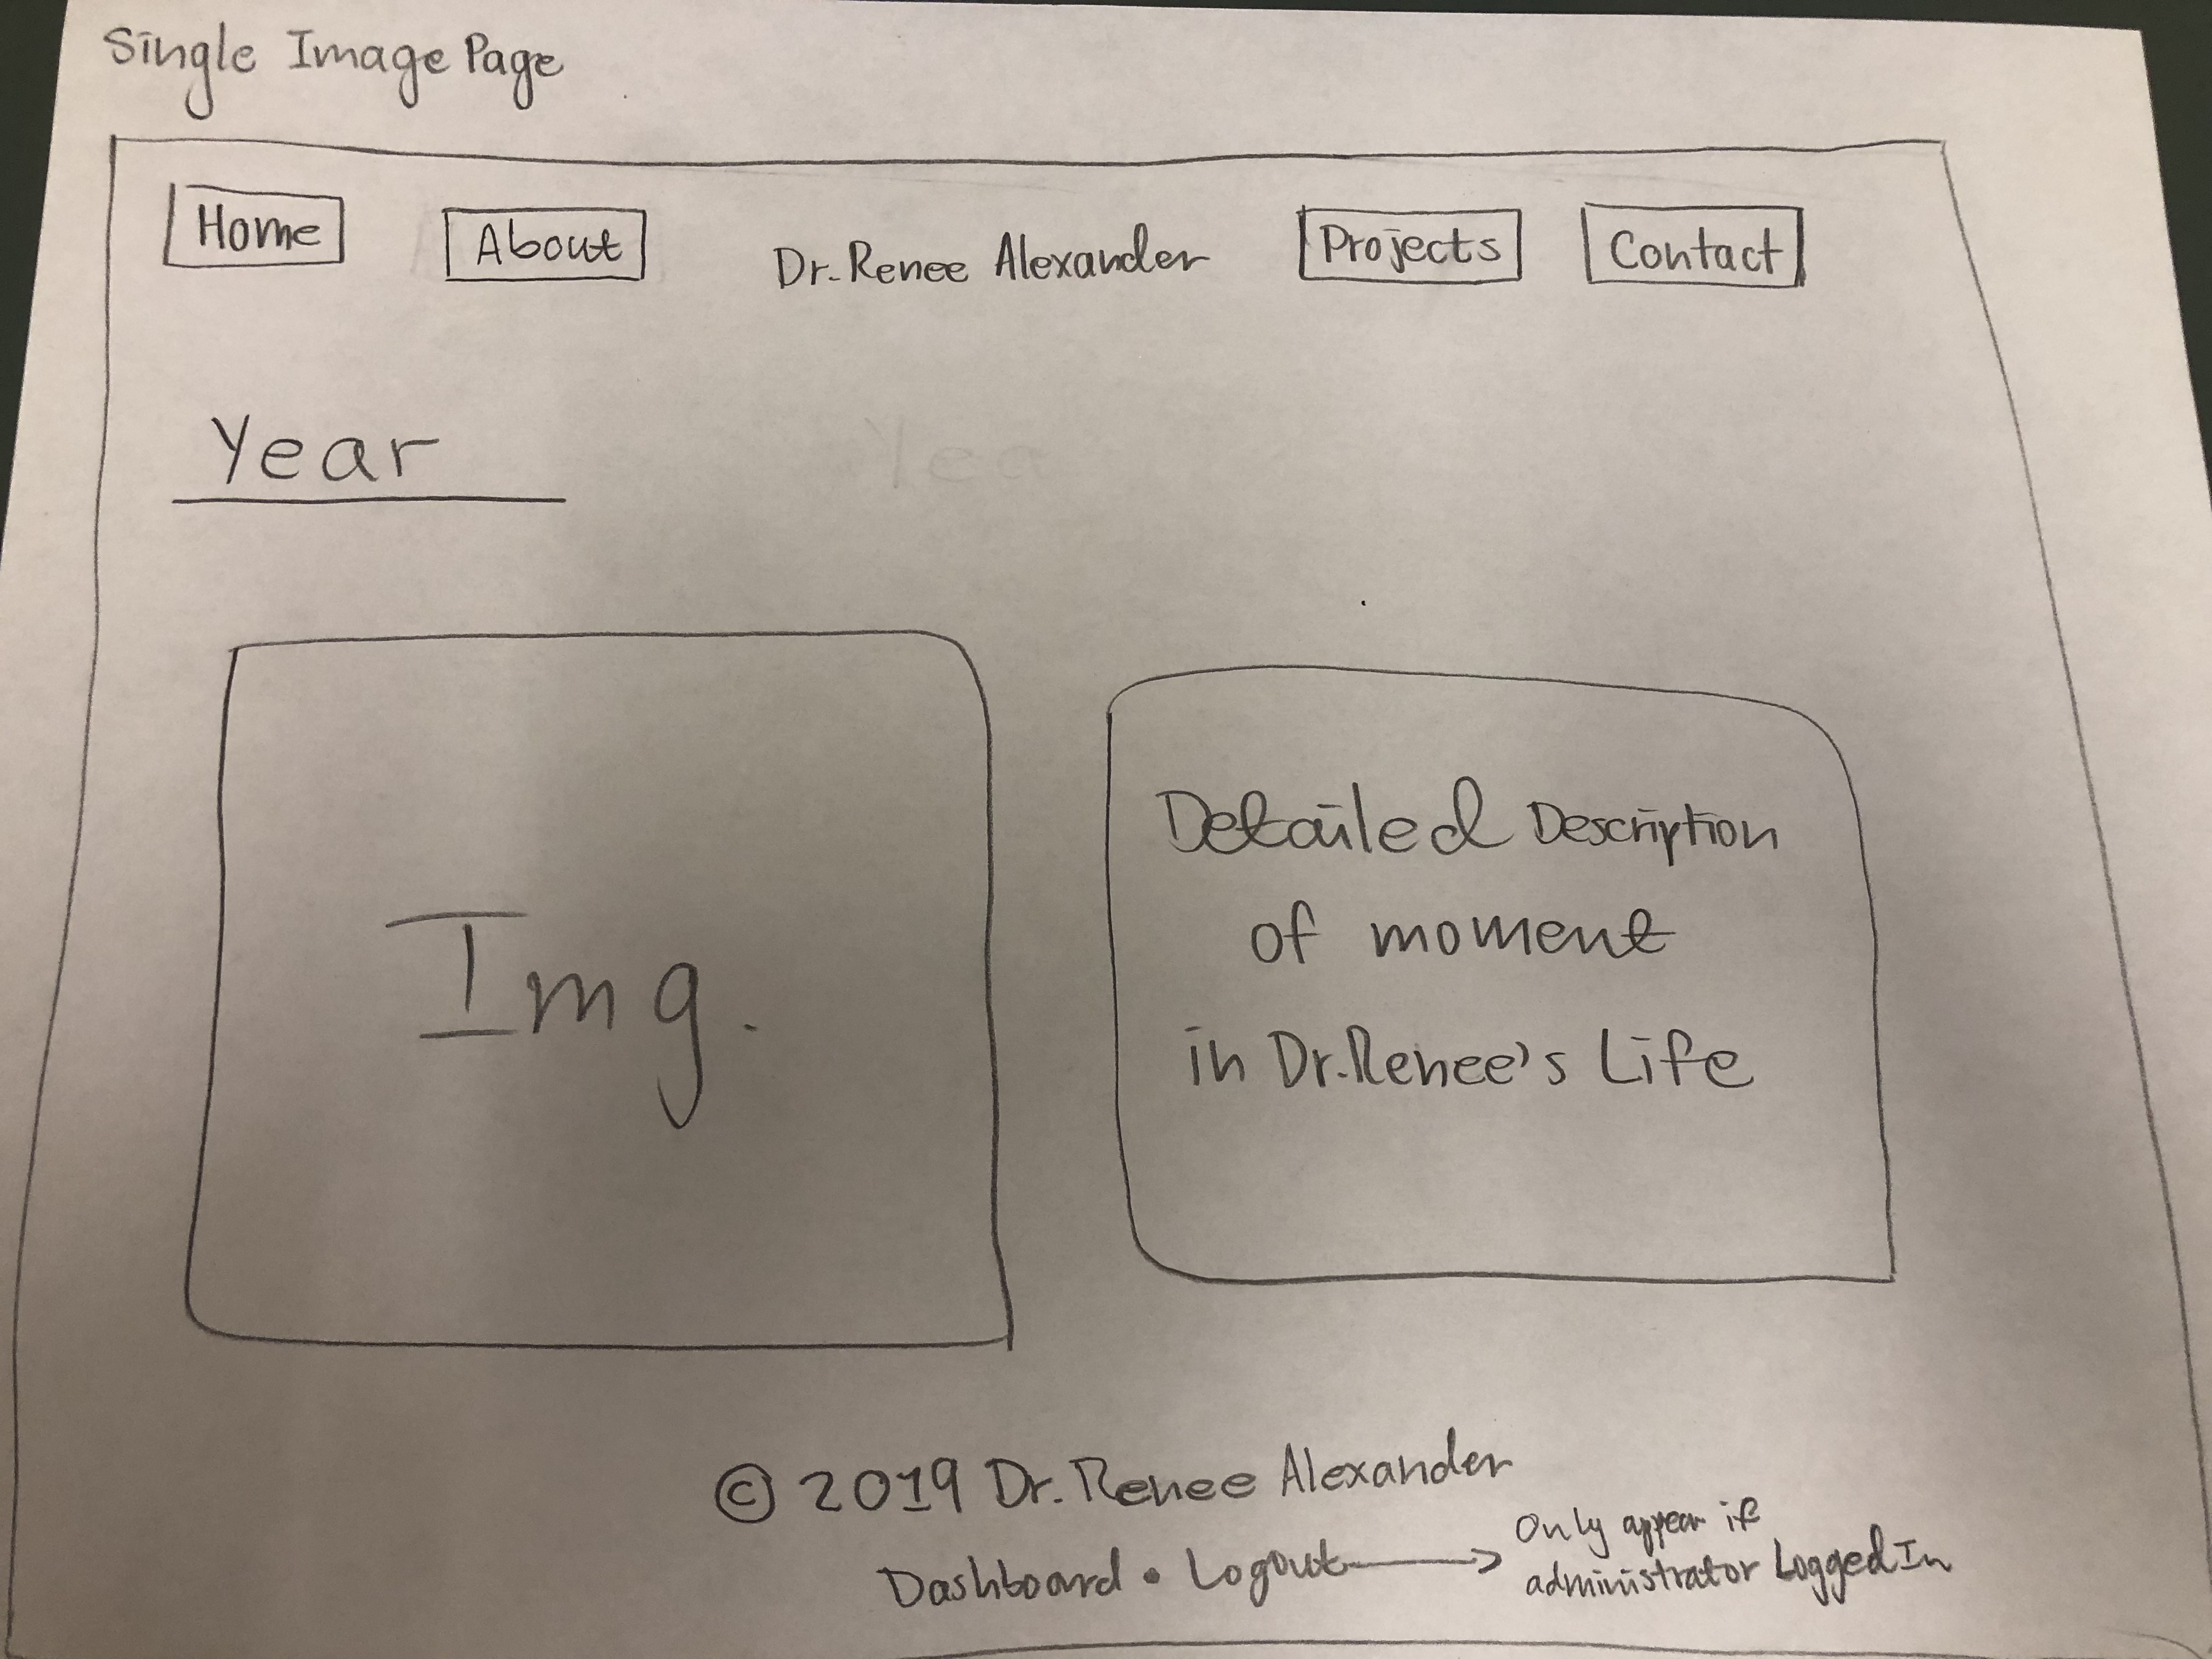 Single Image Page
Home About Dr. Renee Alexander Projects Contact
Year
Img.
Detailed Description
of moment
in Dr. Renee's Life
© 2019 Dr. Renee Alexander
Dashboard • Logout
Only appear if
administrator Logged In